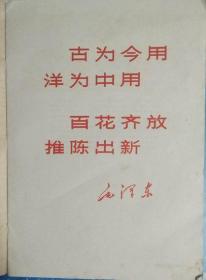 古为今用
洋为中用
百花齐放
推陈出新
毛泽东